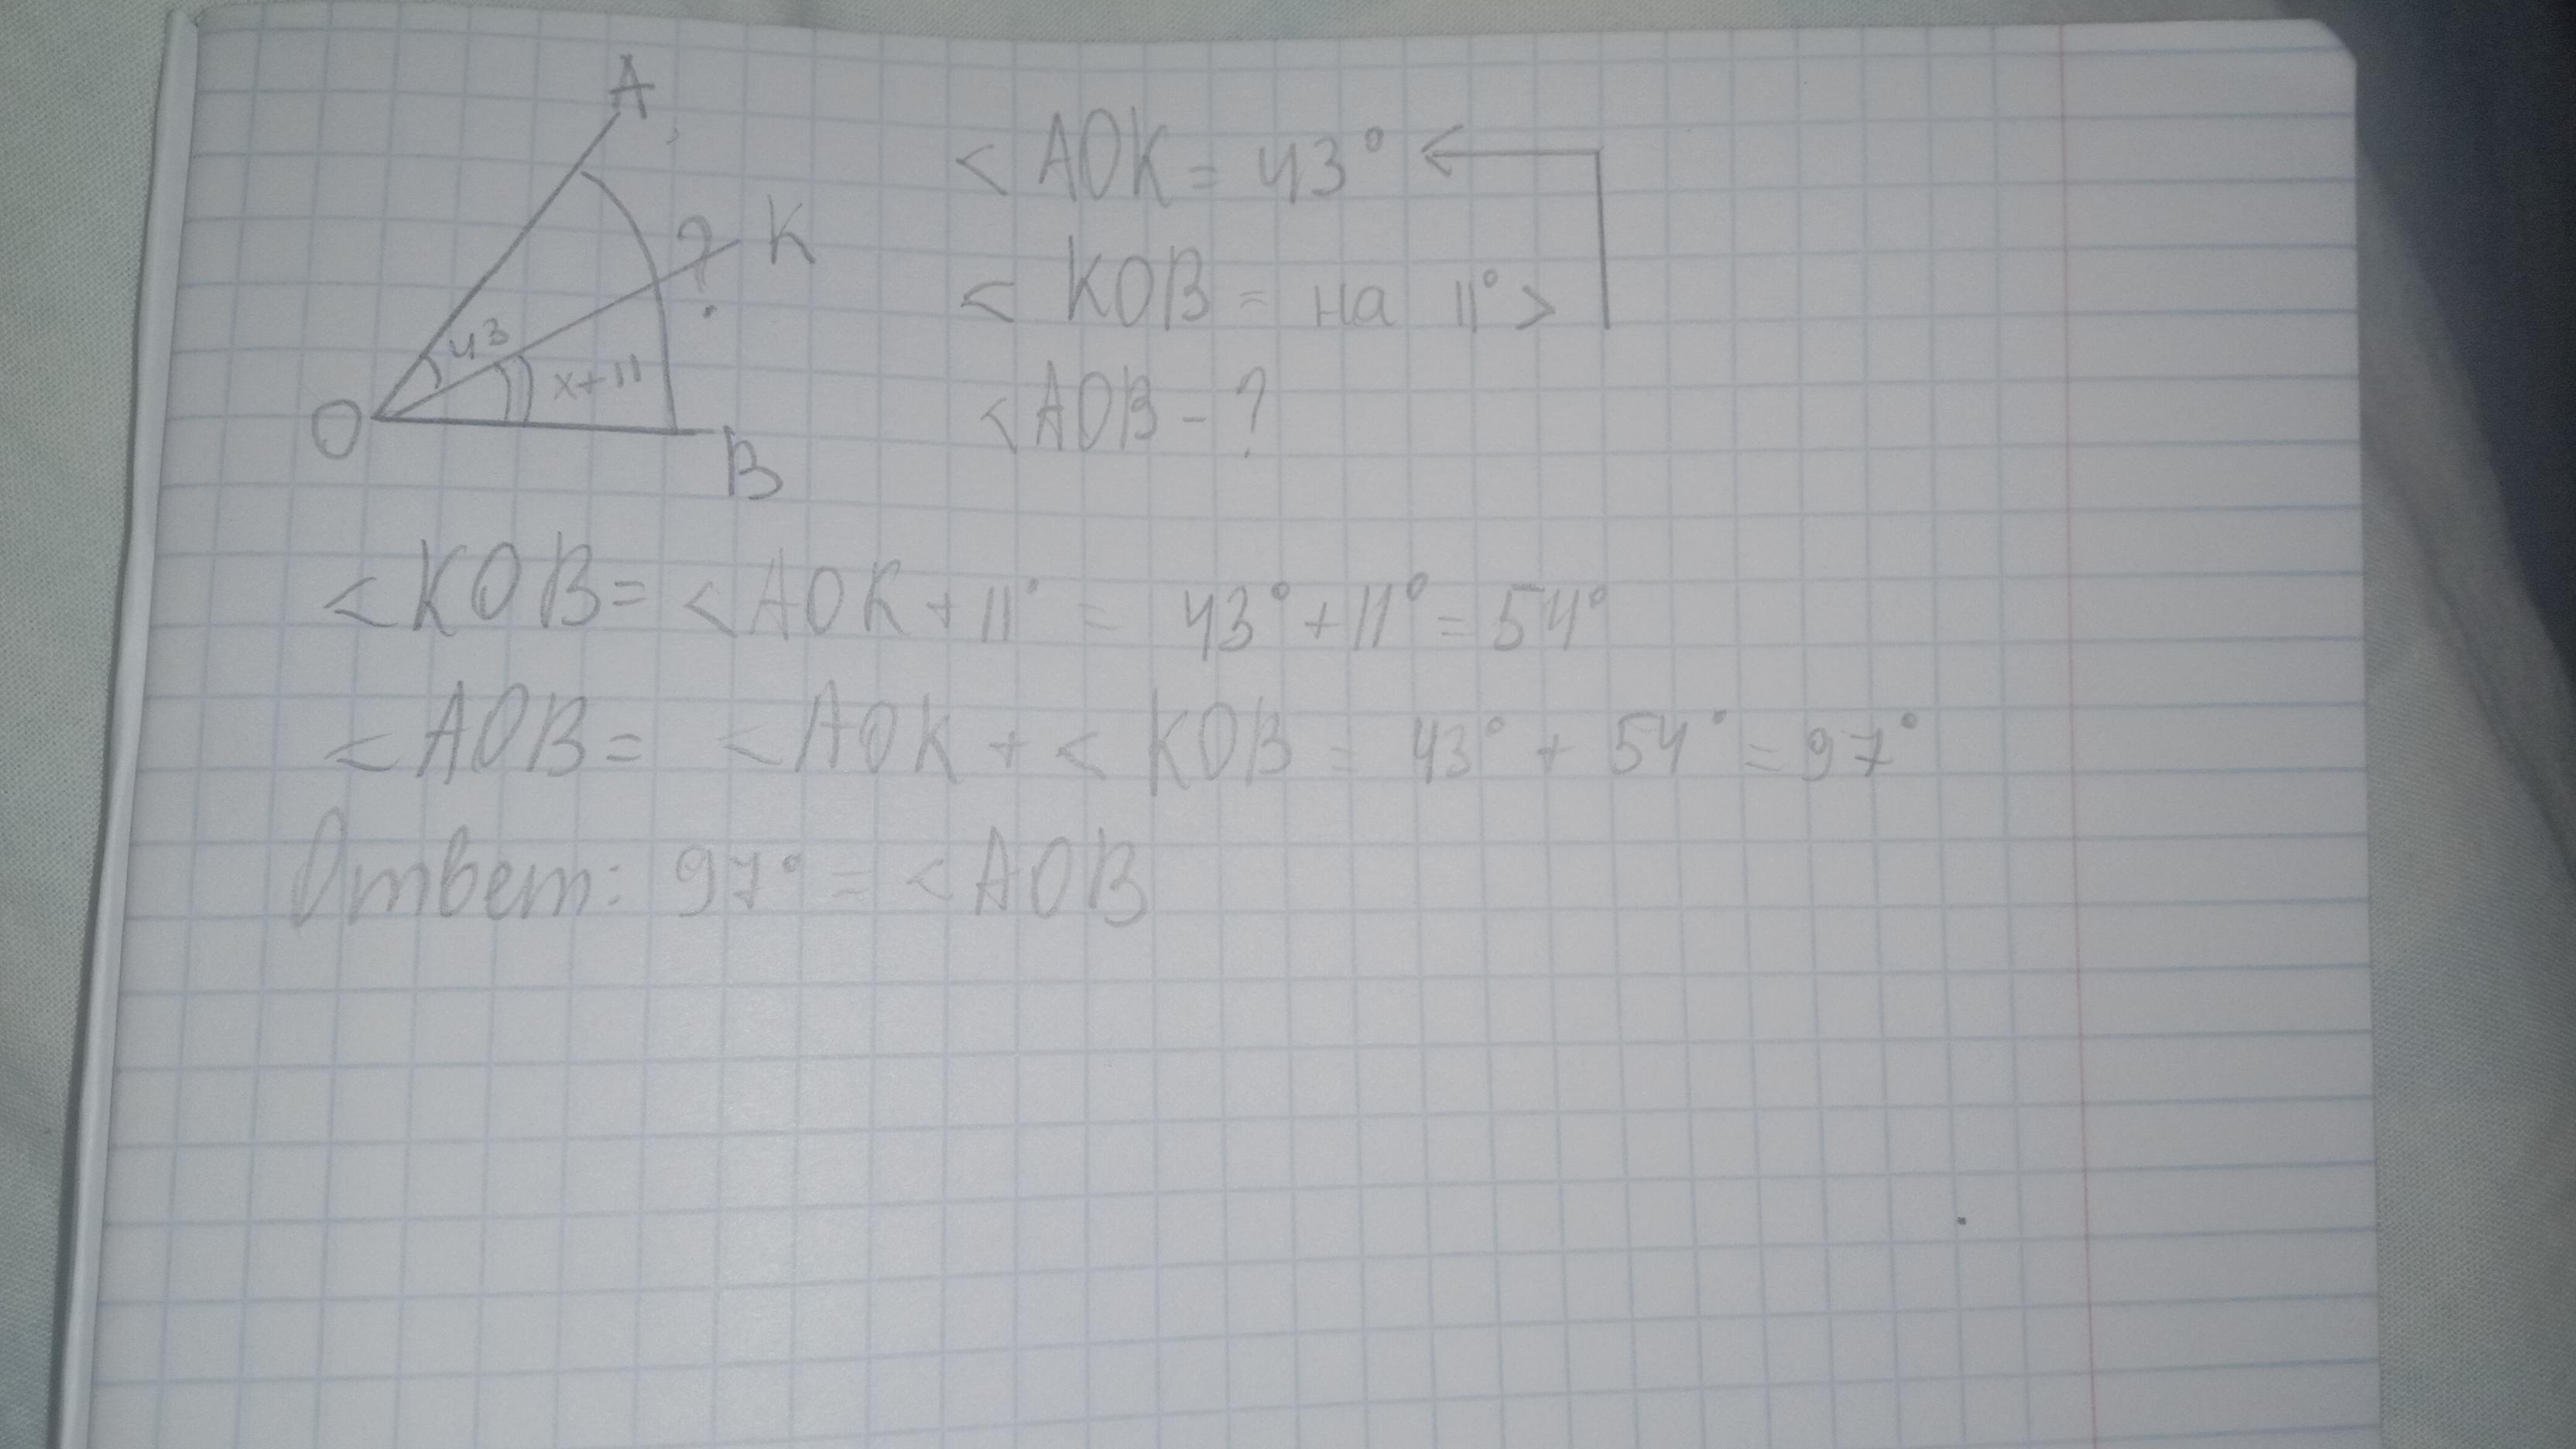 A
K
?
43
x+11
O
B
< AOK = 43°
< KOB = на 11° >
< AOB - ?
< KOB = < AOK + 11° = 43° + 11° = 54°
< AOB = < AOK + < KOB = 43° + 54° = 97°
Ответ: 97° = < AOB